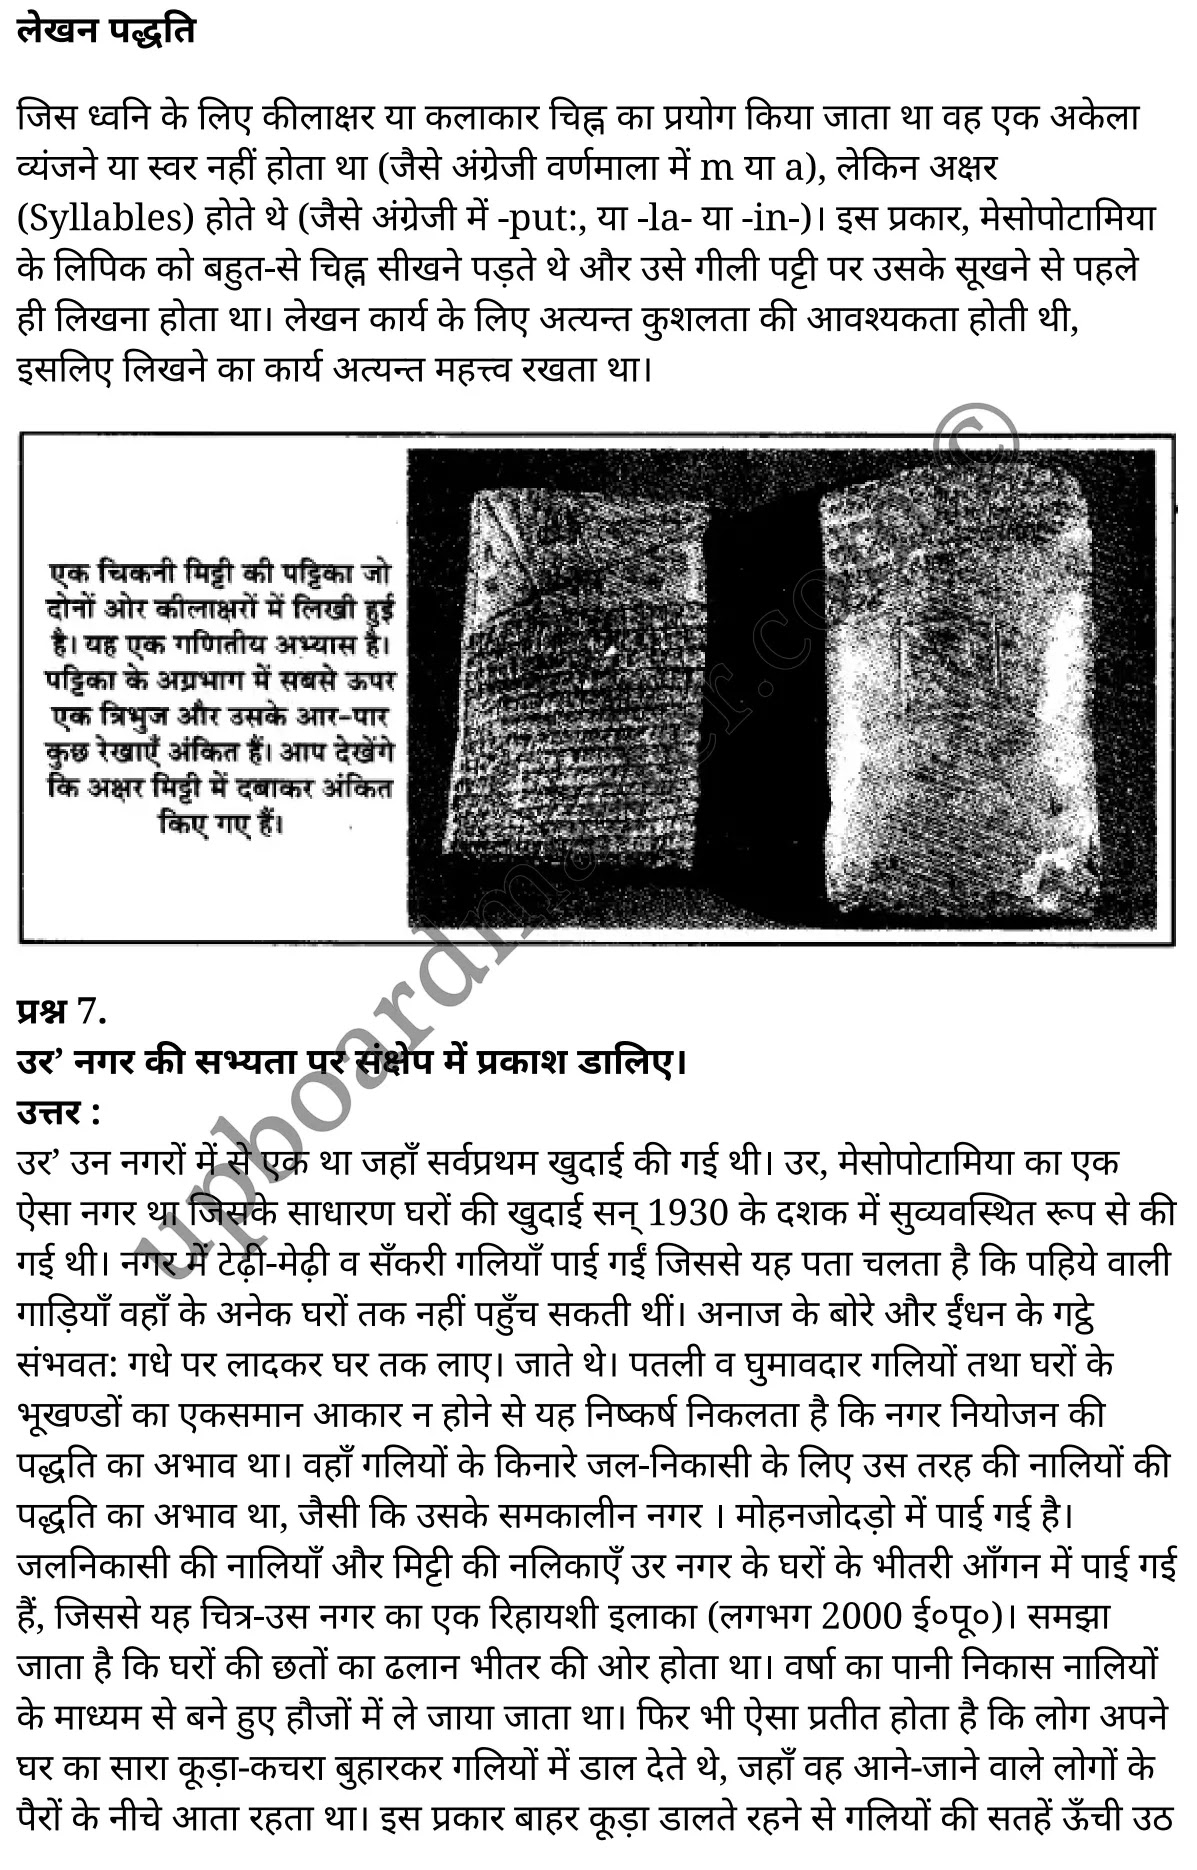 लेखन पद्धति
जिस ध्वनि के लिए कीलाक्षर या कलाकार चिह्न का प्रयोग किया जाता था वह एक अकेला
व्यंजने या स्वर नहीं होता था (जैसे अंग्रेजी वर्णमाला में m या a), लेकिन अक्षर
(Syllables) होते थे (जैसे अंग्रेजी में -put:, या -la- या -in-)। इस प्रकार, मेसोपोटामिया
के लिपिक को बहुत-से चिह्न सीखने पड़ते थे और उसे गीली पट्टी पर उसके सूखने से पहले
ही लिखना होता था। लेखन कार्य के लिए अत्यन्त कुशलता की आवश्यकता होती थी,
इसलिए लिखने का कार्य अत्यन्त महत्त्व रखता था।
एक चिकनी मिट्टी की पट्टिका जो
दोनों ओर कीलाक्षरों में लिखी हुई
है। यह एक गणितीय अभ्यास है।
पट्टिका के अग्रभाग में सबसे ऊपर
एक त्रिभुज और उसके आर-पार
कुछ रेखाएँ अंकित हैं। आप देखेंगे
कि अक्षर मिट्टी में दबाकर अंकित
किए गए हैं।
प्रश्न 7.
उर’ नगर की सभ्यता पर संक्षेप में प्रकाश डालिए।
उत्तर :
उर’ उन नगरों में से एक था जहाँ सर्वप्रथम खुदाई की गई थी। उर, मेसोपोटामिया का एक
ऐसा नगर था जिसके साधारण घरों की खुदाई सन् 1930 के दशक में सुव्यवस्थित रूप से की
गई थी। नगर में टेढ़ी-मेढ़ी व सँकरी गलियाँ पाई गईं जिससे यह पता चलता है कि पहिये वाली
गाड़ियाँ वहाँ के अनेक घरों तक नहीं पहुँच सकती थीं। अनाज के बोरे और ईंधन के गट्ठे
संभवत: गधे पर लादकर घर तक लाए। जाते थे। पतली व घुमावदार गलियों तथा घरों के
भूखण्डों का एकसमान आकार न होने से यह निष्कर्ष निकलता है कि नगर नियोजन की
पद्धति का अभाव था। वहाँ गलियों के किनारे जल-निकासी के लिए उस तरह की नालियों की
पद्धति का अभाव था, जैसी कि उसके समकालीन नगर । मोहनजोदड़ो में पाई गई है।
जलनिकासी की नालियाँ और मिट्टी की नलिकाएँ उर नगर के घरों के भीतरी आँगन में पाई गई
हैं, जिससे यह चित्र-उस नगर का एक रिहायशी इलाका (लगभग 2000 ई०पू०)। समझा
जाता है कि घरों की छतों का ढलान भीतर की ओर होता था। वर्षा का पानी निकास नालियों
के माध्यम से बने हुए हौजों में ले जाया जाता था। फिर भी ऐसा प्रतीत होता है कि लोग अपने
घर का सारा कूड़ा-कचरा बुहारकर गलियों में डाल देते थे, जहाँ वह आने-जाने वाले लोगों के
पैरों के नीचे आता रहता था। इस प्रकार बाहर कूड़ा डालते रहने से गलियों की सतहें ऊँची उठ